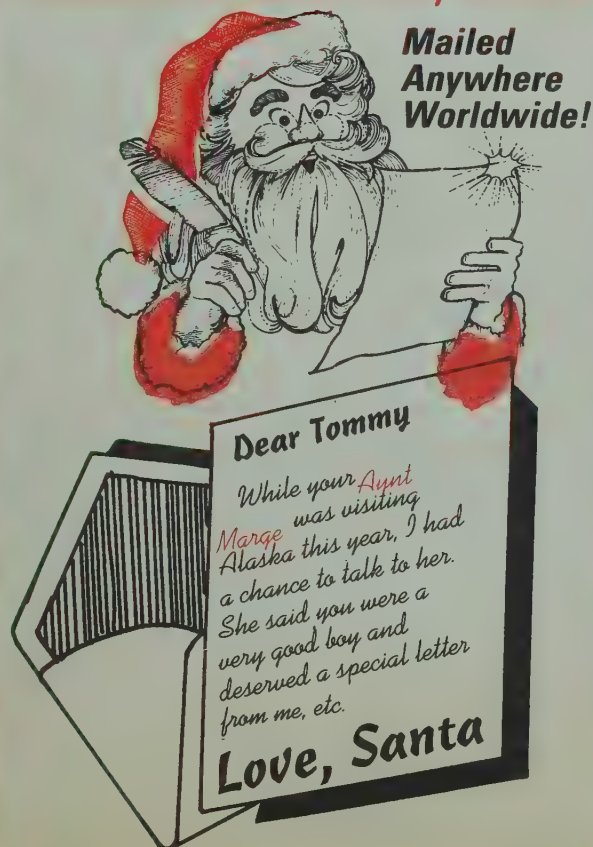 Mailed
Anywhere
Worldwide!
Dear Tommy
While your Aynt
Marge was visiting
Alaska this year, I had
a chance to talk to her.
She said you were a
very good boy and
deserved a special letter
from me, etc.
Love, Santa